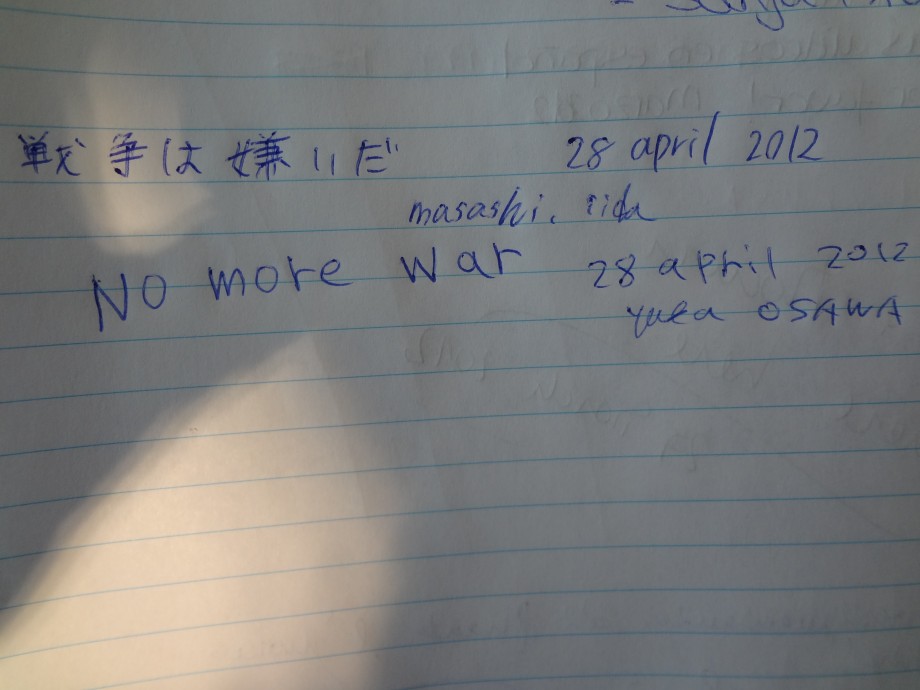 戦争は嫌いだ 28 april 2012
masashi. iida
No more war 28 april 2012
yuka OSAWA